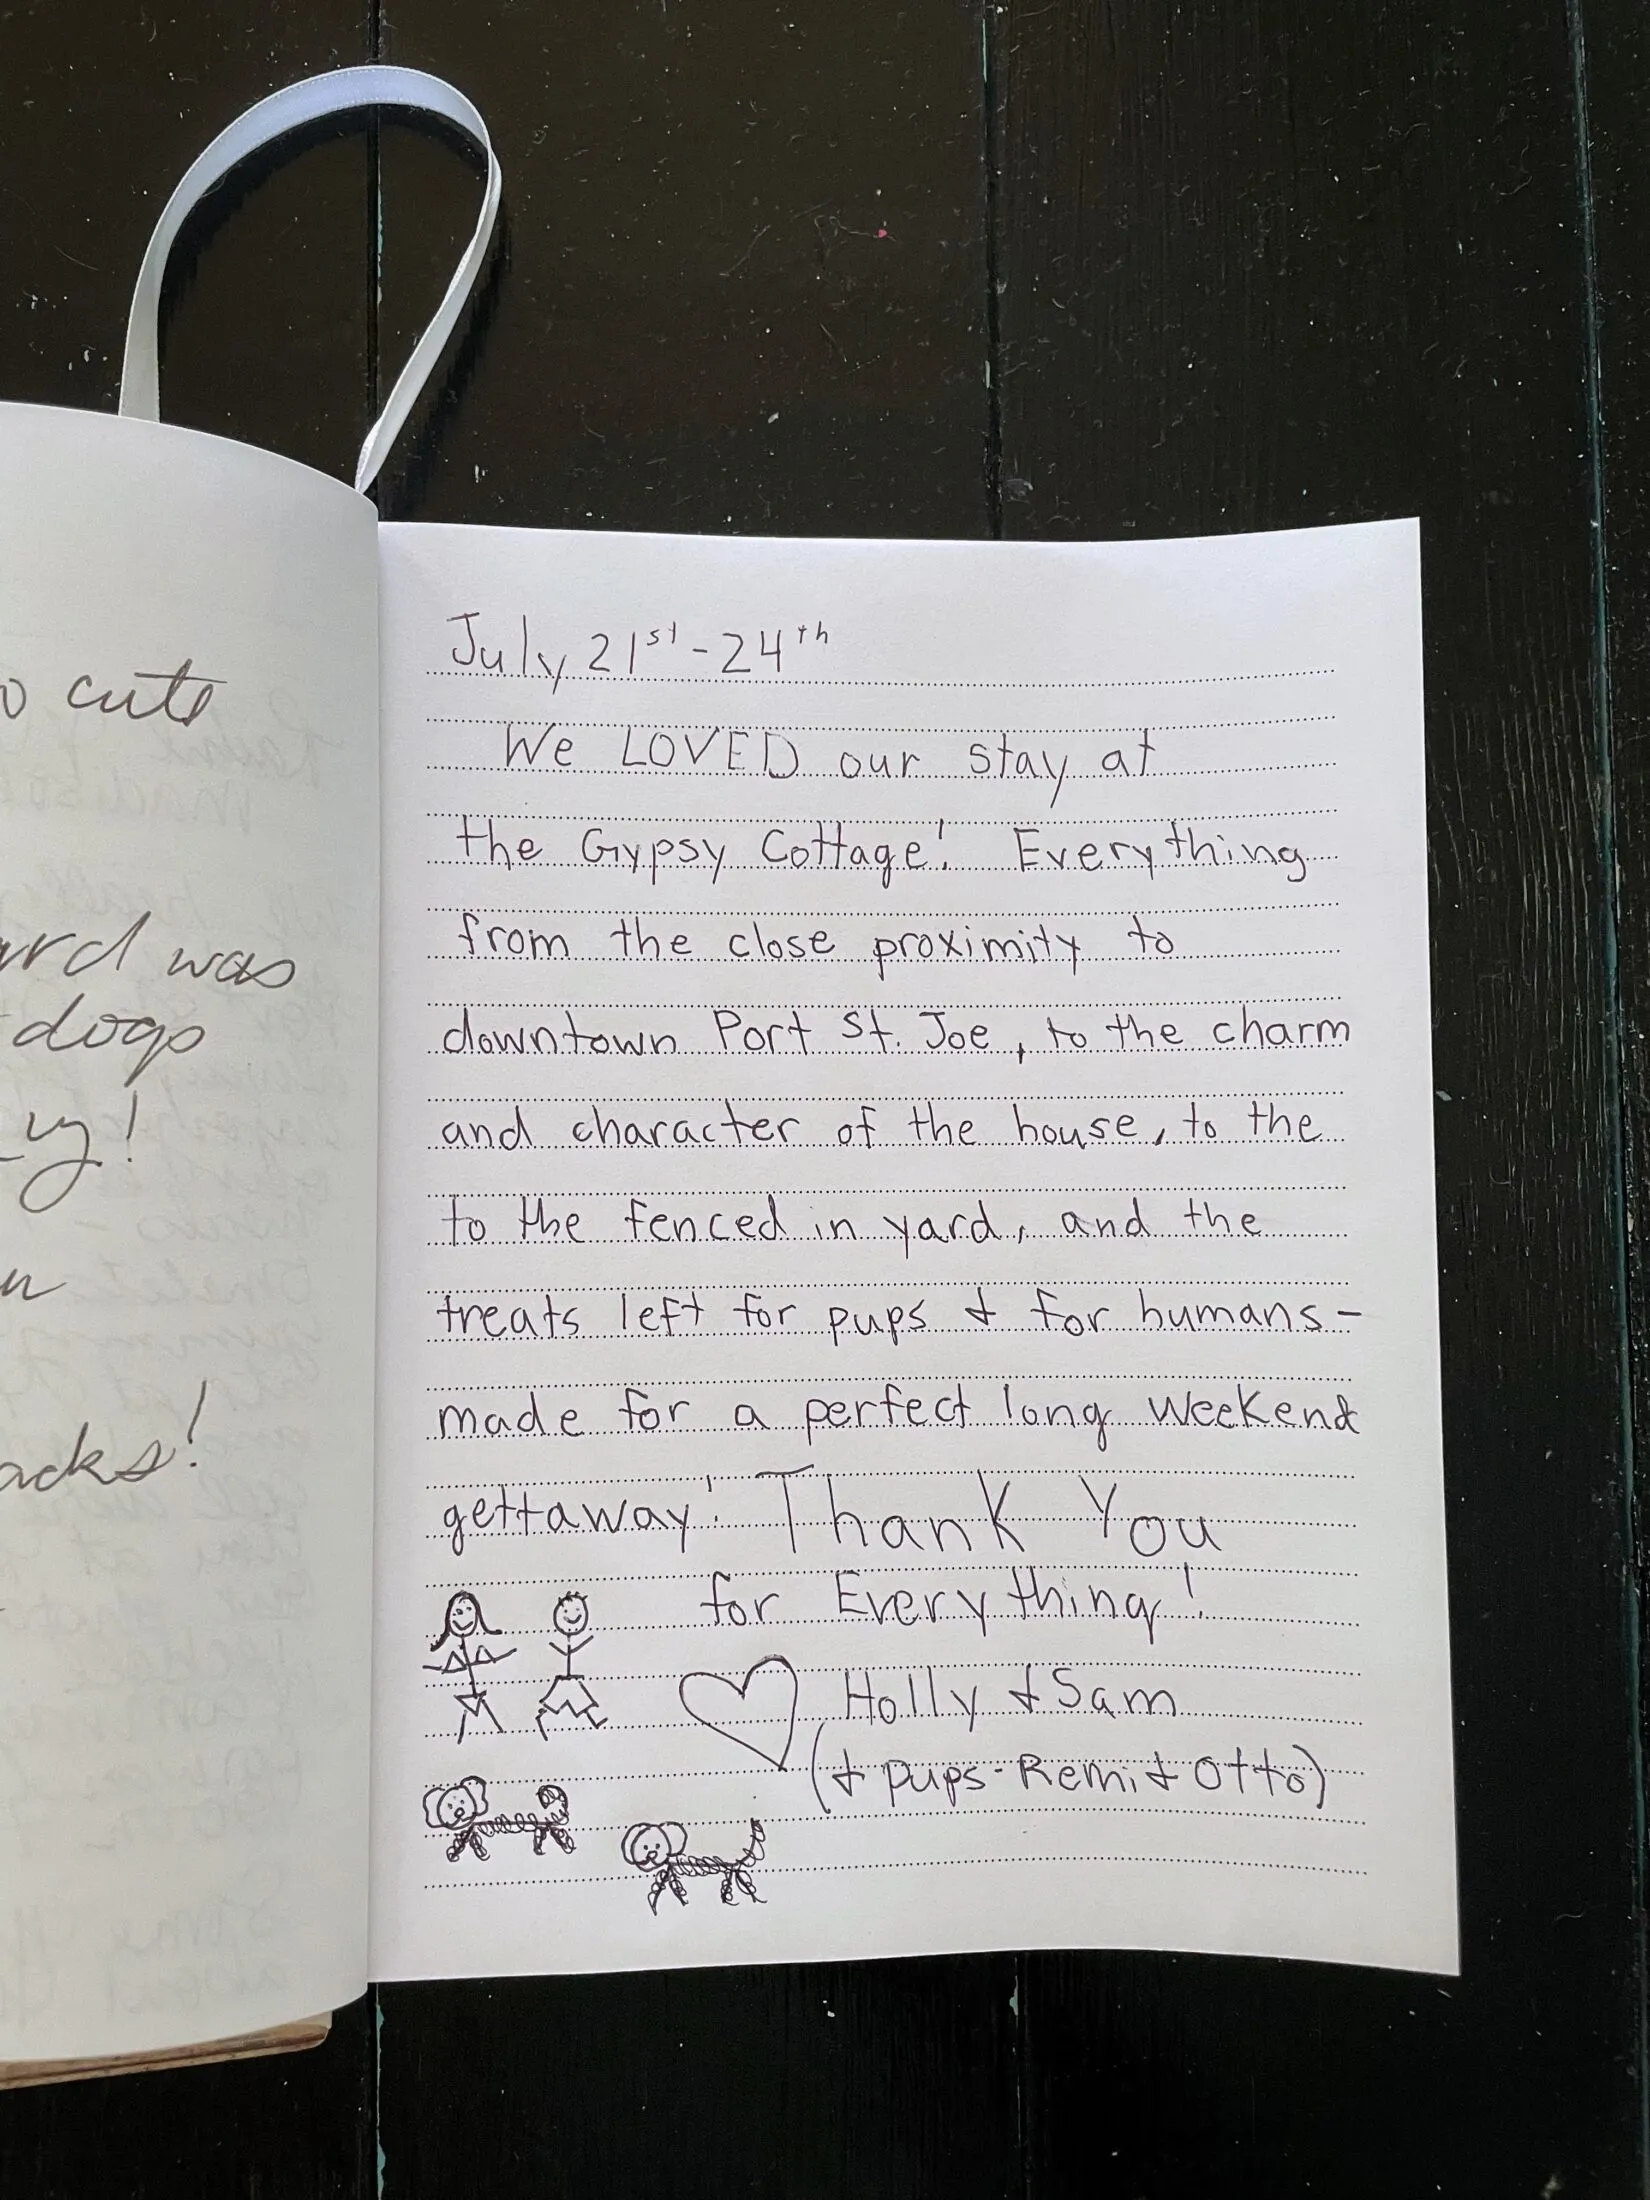 cute
was
dogs
July 21st - 24th
We LOVED our stay at
the Gypsy Cottage! Everything
from the close proximity to
downtown Port St. Joe, to the charm
and character of the house, to the
to the fenced in yard, and the
treats left for pups & for humans -
made for a perfect long weekend
gettaway! Thank You
for Everything!
Holly & Sam
(& pups - Remi & Otto)